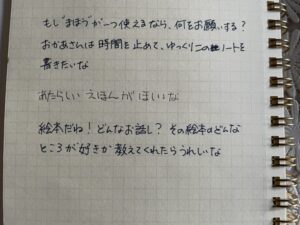 もし"まほう"が一つ使えるなら、何をお願いする？
おかあさんは時間を止めて、ゆっくりこのノートを
書きたいな
あたらしいえほんがほしいな
絵本だね！どんなお話し？その絵本のどんな
ところが好きか教えてくれたらうれしいな